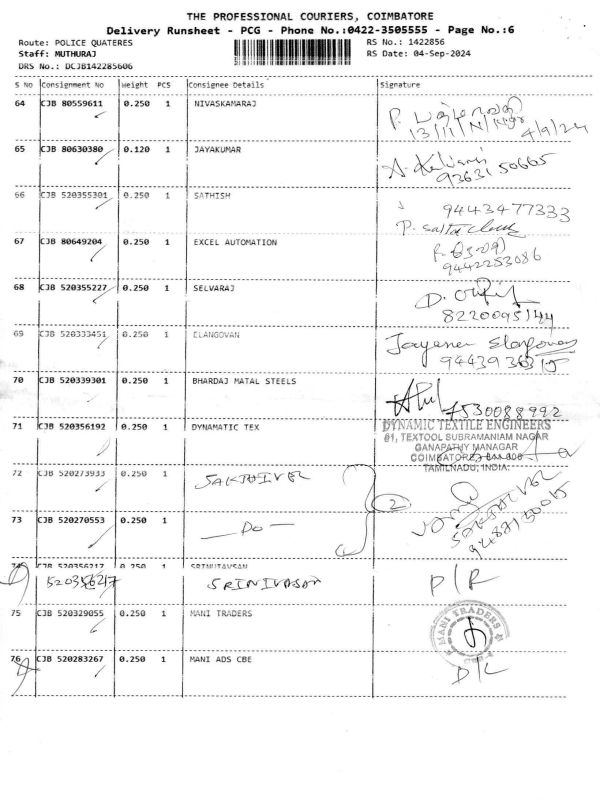 THE PROFESSIONAL COURIERS, COIMBATORE
Delivery Runsheet - PCG - Phone No.:0422-3505555 - Page No.:6
Route: POLICE QUATERES RS No.: 1422856
Staff: MUTHURAJ RS Date: 04-Sep-2024
DRS No.: DCJB142285606
S No Consignment No Weight PCS Consignee Details Signature
64 CJB 80559611 0.250 1 NIVASKAMARAJ
4/9/24
65 CJB 80630380 0.120 1 JAYAKUMAR
9363150665
66 CJB 520355301 0.250 1 SATHISH
9443477333
67 CJB 80649204 0.250 1 EXCEL AUTOMATION
9442253086
68 CJB 520355227 0.250 1 SELVARAJ
8220095144
69 CJB 520333451 0.250 1 ELANGOVAN
9443936315
70 CJB 520339301 0.250 1 BHARDAJ MATAL STEELS
7530088992
71 CJB 520356192 0.250 1 DYNAMATIC TEX
DYNAMIC TEXTILE ENGINEERS
61, TEXTOOL SUBRAMANIAM NAGAR
GANAPATHY MANAGAR
COIMBATORE
TAMILNADU, INDIA.
72 CJB 520273933 0.250 1 SAKTHIVEL
2
SAKTHIVEL
73 CJB 520270553 0.250 1 — DO —
74 CJB 520356217 0.250 1 SRINIVASAN
520356217 SRINIVASAN D/R
75 CJB 520329055 0.250 1 MANI TRADERS
MANI TRADERS
76 CJB 520283267 0.250 1 MANI ADS CBE
D/L